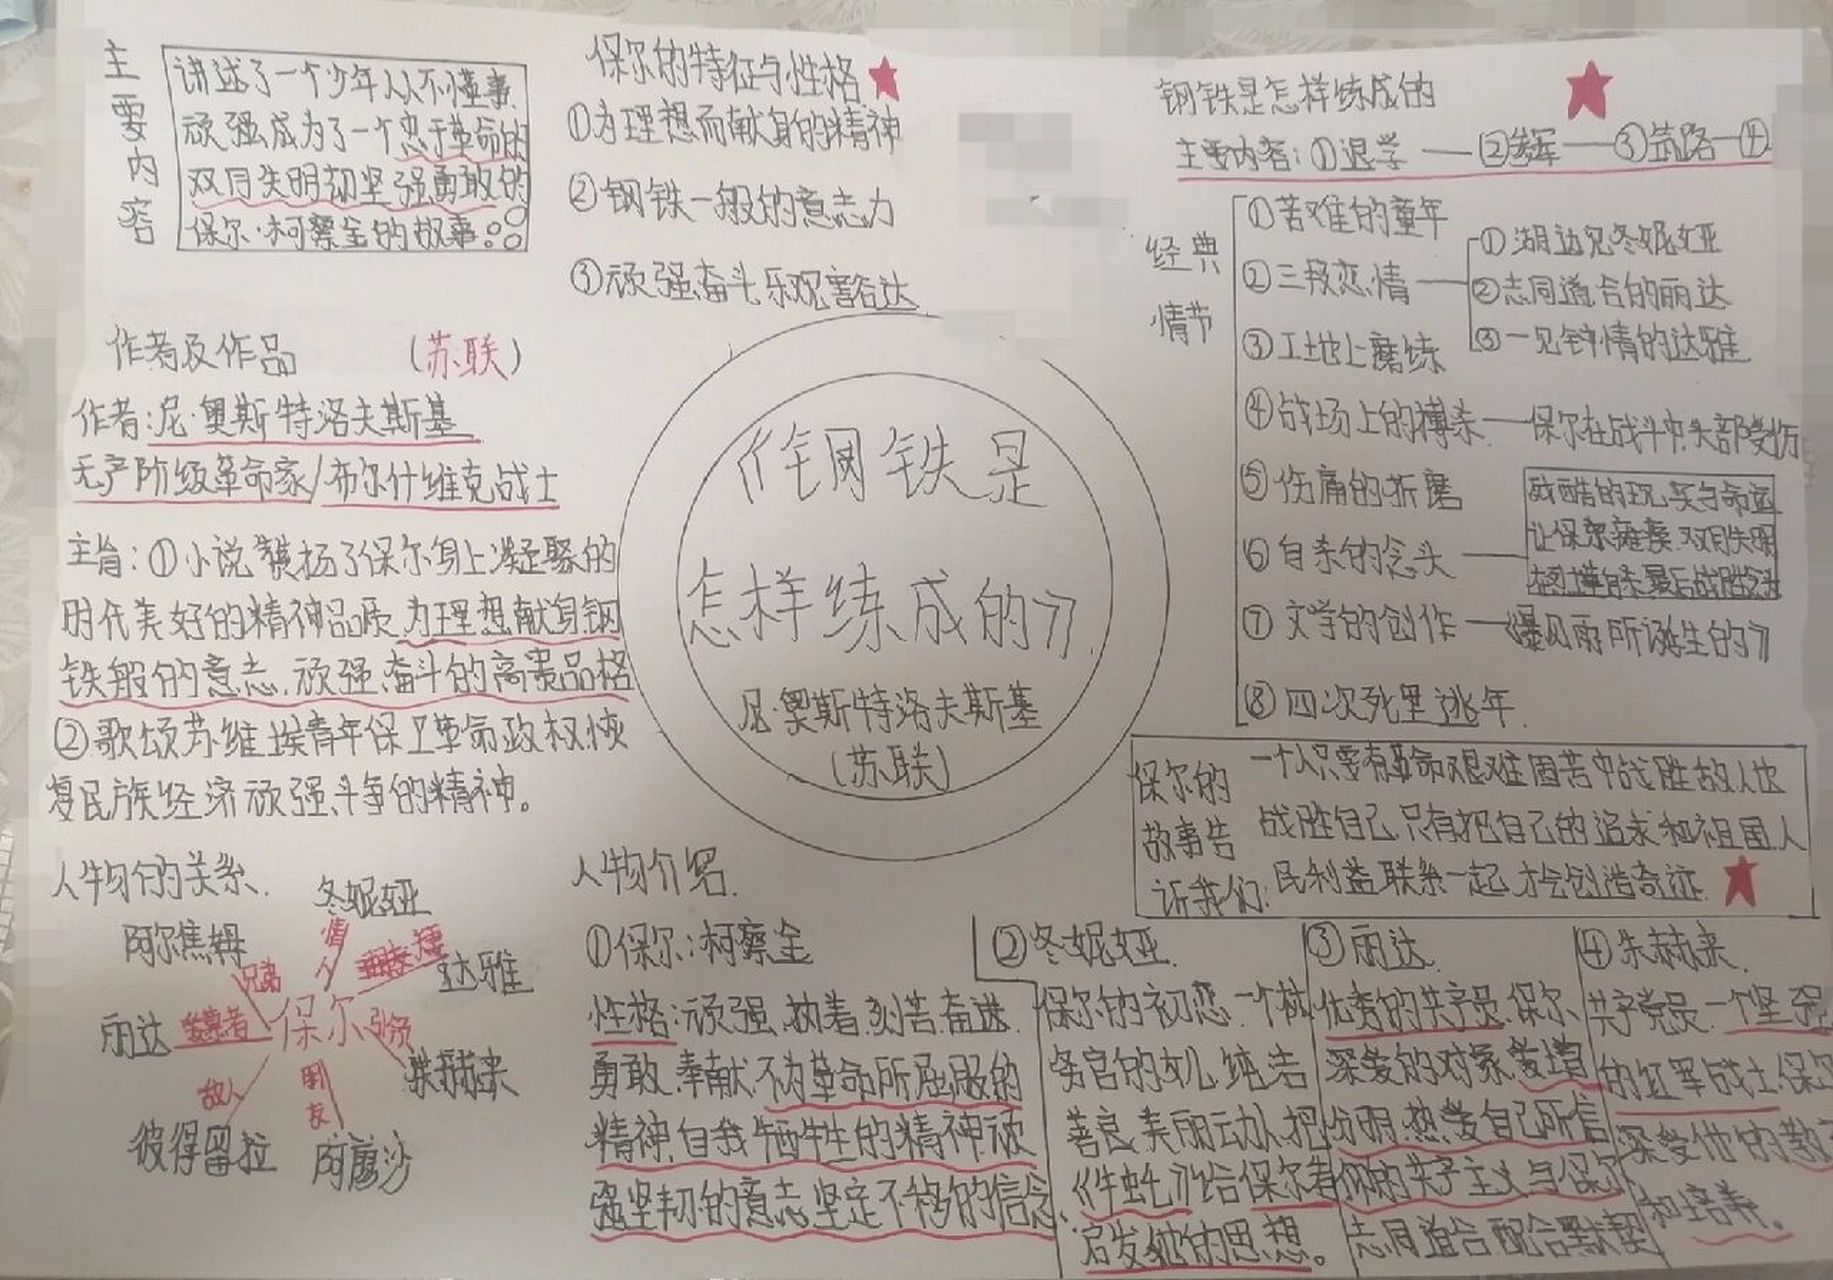 主要内容
讲述了一个少年从不懂事
顽强成为了一个忠于革命的
双目失明却坚强勇敢的
保尔·柯察金的故事。
保尔的特征与性格
①为理想而献身的精神
②钢铁一般的意志力
③顽强奋斗乐观豁达
钢铁是怎样练成的
主要内容:①退学——②参军——③筑路—④
经典情节
①苦难的童年
②三段恋情
①湖边见冬妮娅
②志同道合的丽达
③一见钟情的达雅
③工地上磨练
④战场上的搏杀——保尔在战斗中头部受伤
⑤伤痛的折磨
⑥自杀的念头
残酷的现实与命运
让保尔瘫痪.双目失明
⑦文学的创作—《暴风雨所诞生的》
⑧四次死里逃年.
作者及作品 (苏联)
作者:尼·奥斯特洛夫斯基
无产阶级革命家/布尔什维克战士
主旨:①小说赞扬了保尔身上凝聚的
时代美好的精神品质,为理想献身,钢
铁般的意志,顽强奋斗的高贵品格
②歌颂苏维埃青年保卫革命政权恢
复民族经济顽强斗争的精神。
《钢铁是
怎样练成的》.
尼·奥斯特洛夫斯基
(苏联)
保尔的故事告诉我们:
一个人只要有革命艰难困苦中战胜敌人也
战胜自己,只有把自己的追求和祖国人
民利益联系一起,才会创造奇迹.
人物的关系.
冬妮娅
阿尔焦姆
情人
兄弟
达雅
丽达
保尔
朱赫来
敌人
朋友
彼得留拉
阿廖沙
人物介绍.
①保尔:柯察金
性格:顽强.执着.刻苦.奋进.
勇敢.奉献.不为革命所屈服的
精神.自我牺牲的精神.顽
强坚韧的意志.坚定不移的信念.
②冬妮娅.
保尔的初恋.一个林
务官的女儿.纯洁
善良.美丽动人.把
《牛虻》给保尔看
启发他的思想。
③丽达.
优秀的共产员.保尔
深爱的对象.爱增
分明.热爱自己所信
仰的共产主义.与保尔
志同道合配合默契
④朱赫来.
共产党员.一个坚强
的红军战士.保尔
深受他的教育
和培养。